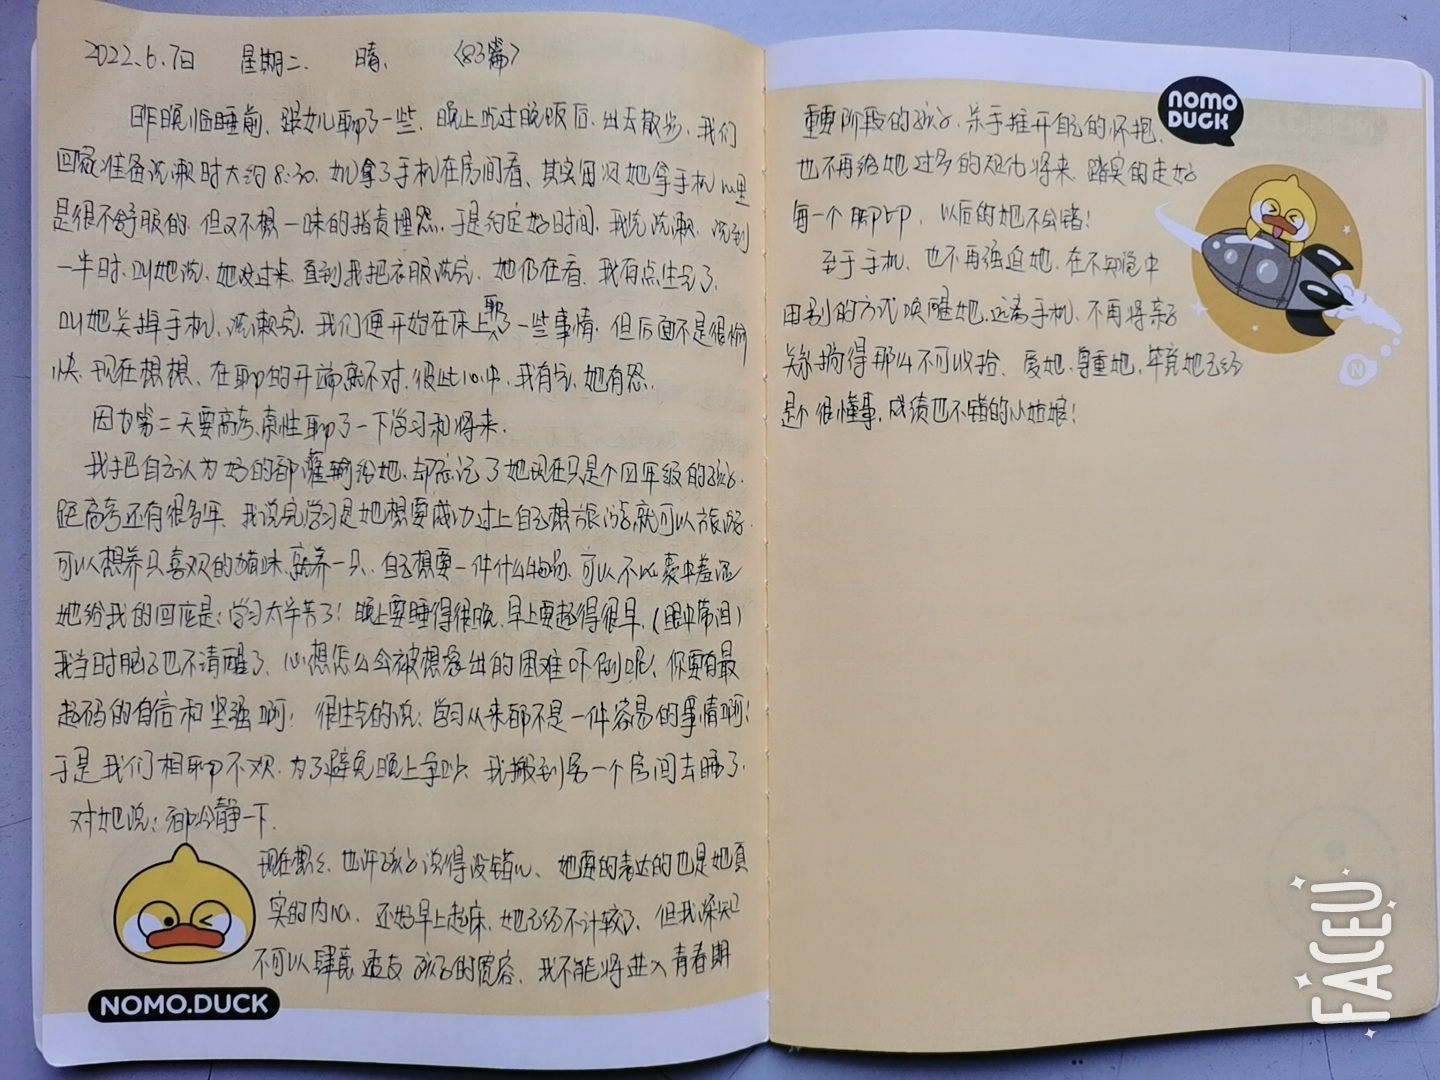 2022.6.7日 星期二. 晴. 《83篇》
昨晚临睡前、跟女儿聊了一些、晚上吃过晚饭后、出去散步、我们
回家准备洗漱时大约8:30. 女儿拿了手机在房间看、其实每次她拿手机心里
是很不舒服的. 但又不想一味的指责埋怨. 于是约定好时间. 我先洗漱. 洗到
一半时. 叫她洗. 她没过来. 直到我把衣服洗完. 她仍在看. 我有点生气了.
叫她关掉手机、洗漱完. 我们便开始在床上聊了一些事情. 但后面不是很愉
快. 现在想想、在聊的开端就不对. 彼此心中. 我有气. 她有怨.
因为第二天要高考. 索性聊了一下学习和将来.
我把自己认为好的都灌输给她. 却忘记了她现在只是个四年级的孩子.
距高考还有很多年. 我说完学习是她想要成功过上自己想旅游就可以旅游.
可以想养只喜欢的猫咪. 就养一只. 自己想要一件什么物品、可以不必囊中羞涩
她给我的回应是：学习太辛苦了！晚上要睡得很晚、早上要起得很早.（眼中带泪）
我当时脑子也不清醒了. 心想怎么会被想象出的困难吓倒呢！你要有最
起码的自信和坚强啊！很生气的说：学习从来都不是一件容易的事情啊！
于是我们相聊不欢. 为了避免晚上争吵. 我搬到另一个房间去睡了.
对她说：都冷静一下.
现在想想. 也许孩子说得没错、她要的表达的也是她真
实的内心. 还好早上起床. 她已经不计较了. 但我深知
不可以肆意透支孩子的宽容. 我不能将进入青春期
NOMO.DUCK
nomo
DUCK
重要阶段的孩子. 亲手推开自己的怀抱.
也不再给她过多的规化将来. 踏实的走好
每一个脚印. 以后的她不会错！
至于手机、也不再强迫她. 在不知觉中
用别的方式唤醒她. 远离手机、不再将亲子
关系搞得那么不可收拾. 爱她. 尊重她. 毕竟她已经
是个很懂事. 成绩也不错的小姑娘！
N
FACEU